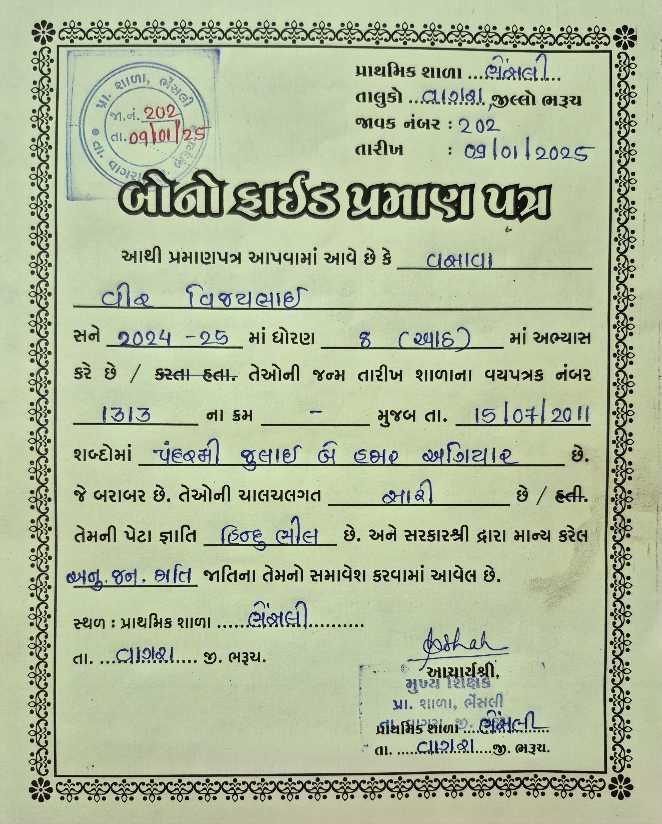 પ્રા. શાળા, ભેંસલી
જા.નં. 202
તા. 09/01/25
તા. વાગરા
પ્રાથમિક શાળા ...ભેંસલી...
તાલુકો ...વાગરા.. જીલ્લો ભરૂચ
જાવક નંબર : 202
તારીખ : 09/01/2025
બોનો ફાઈડ પ્રમાણ પત્ર
આથી પ્રમાણપત્ર આપવામાં આવે છે કે વસાવા
વીર વિજયભાઈ
સને 2024 -25 માં ધોરણ 8 (આઠ) માં અભ્યાસ
કરે છે / કરતા હતા. તેઓની જન્મ તારીખ શાળાના વયપત્રક નંબર
1313 ના ક્રમ - મુજબ તા. 15/07/2011
શબ્દોમાં પંદરમી જુલાઈ બે હજાર અગિયાર છે.
જે બરાબર છે. તેઓની ચાલચલગત સારી છે / હતી.
તેમની પેટા જ્ઞાતિ હિન્દુ ભીલ છે. અને સરકારશ્રી દ્વારા માન્ય કરેલ
અનુ. જન. જાતિ જાતિના તેમનો સમાવેશ કરવામાં આવેલ છે.
સ્થળ : પ્રાથમિક શાળા ......ભેંસલી...........
તા. ...વાગરા.... જી. ભરૂચ.
આચાર્યશ્રી,
મુખ્ય શિક્ષક
પ્રા. શાળા, ભેંસલી
પ્રાથમિક શાળા ...ભેંસલી
તા. .....વાગરા....જી. ભરૂચ.